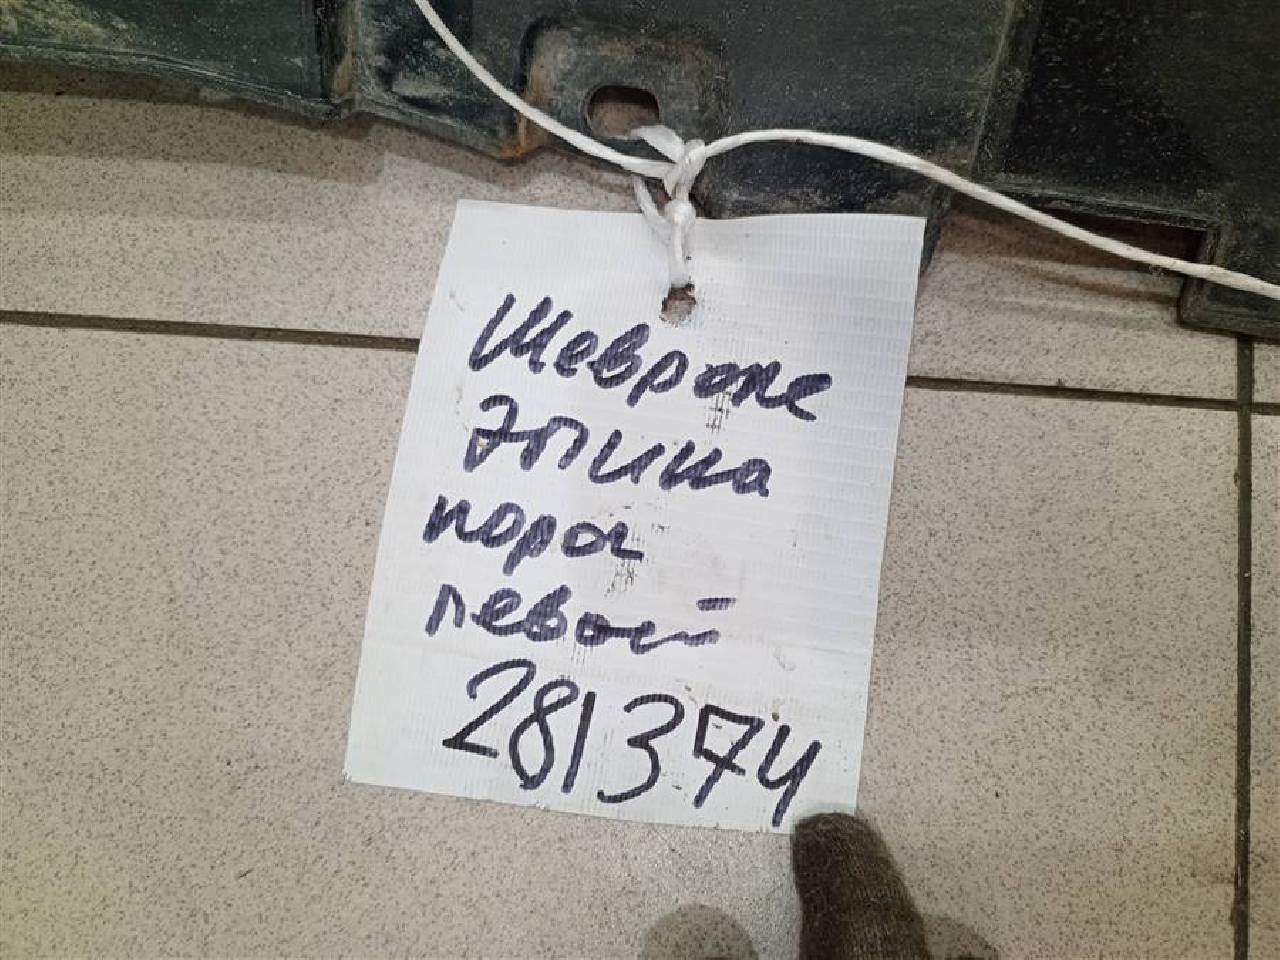 Шевроле
Эпика
порог
левой
281374